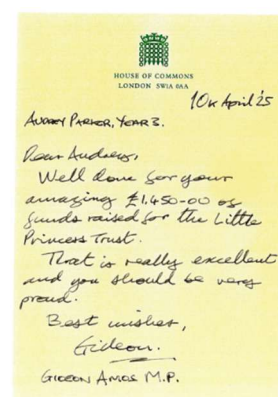 HOUSE OF COMMONS
LONDON SW1A 0AA
10th April '25
AUDREY PARKER, YEAR 3.
Dear Audrey,
Well done for your
amazing £1,450-00 of
funds raised for the Little
Princess Trust.
That is really excellent
and you should be very
proud.
Best wishes,
Gideon.
GIDEON AMOS M.P.